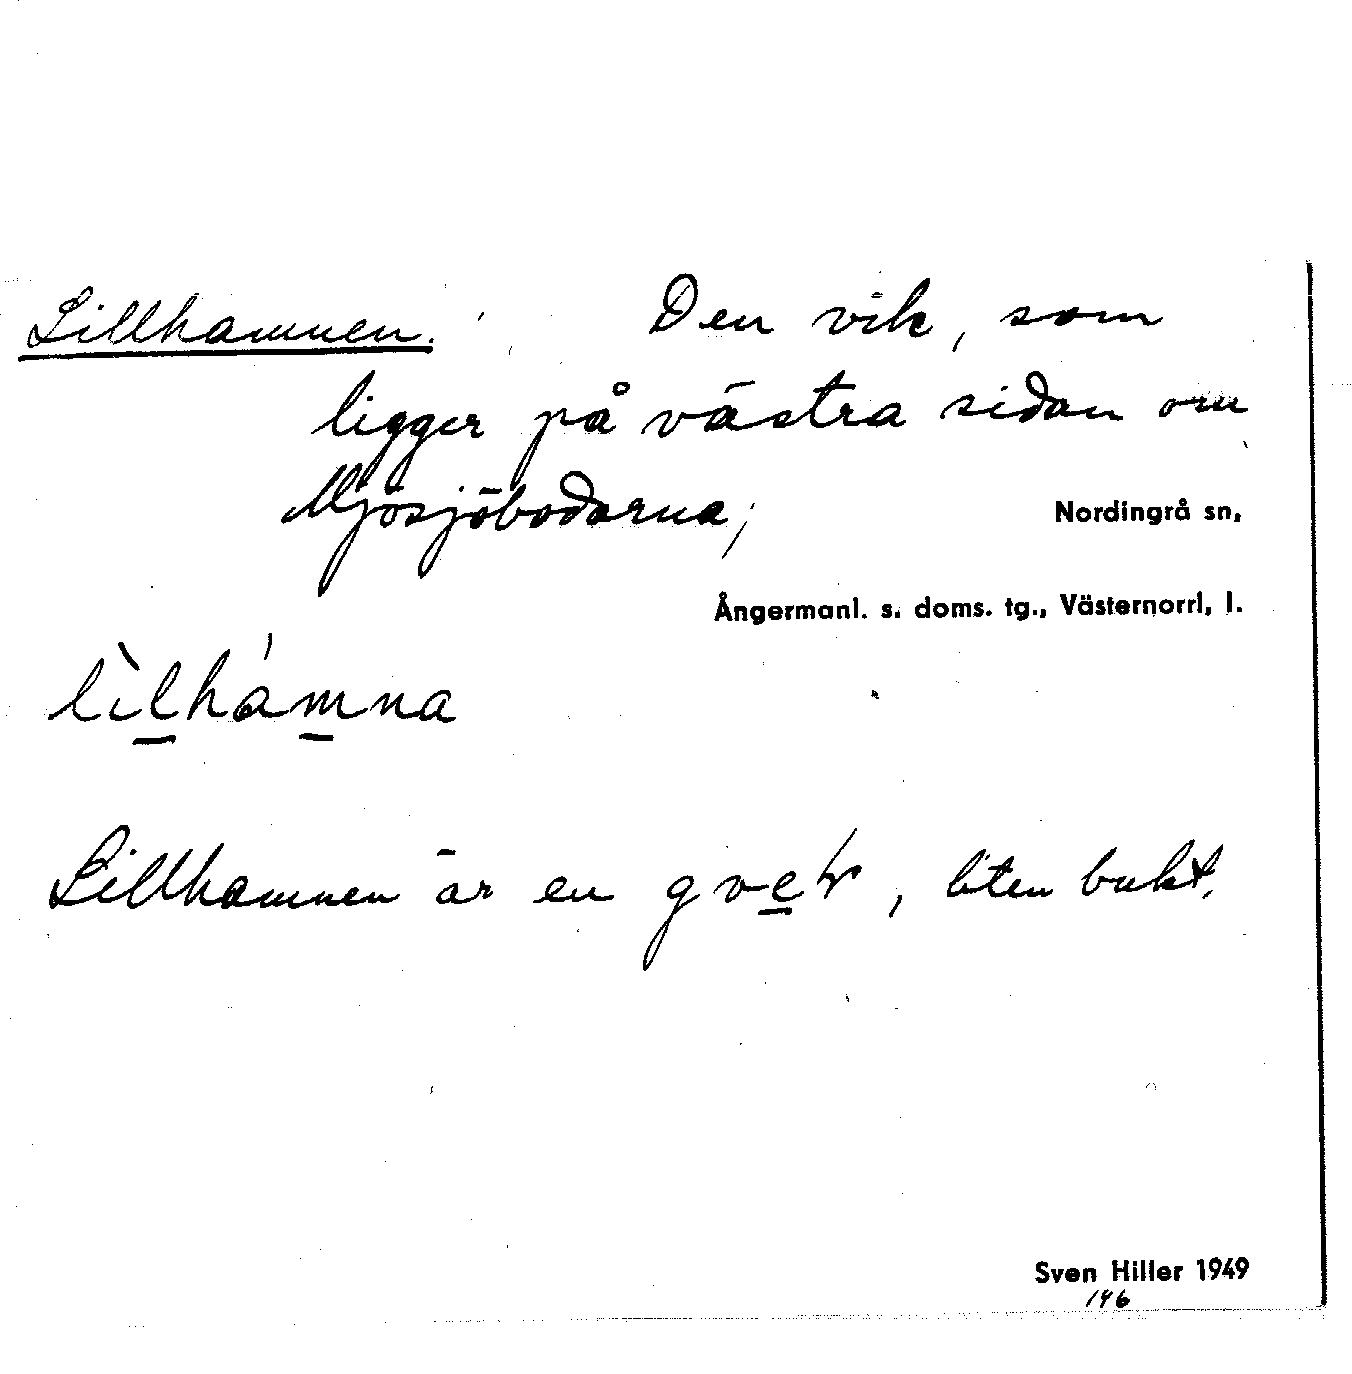 Lillhamnen. Den vik, som
ligger på västra sidan om
Mjösjöbodarna;
Nordingrå sn,
Ångermanl. s. doms. tg., Västernorrl. l.
lìlhámna
Lillhamnen är en , liten bukt.
Sven Hiller 1949
196